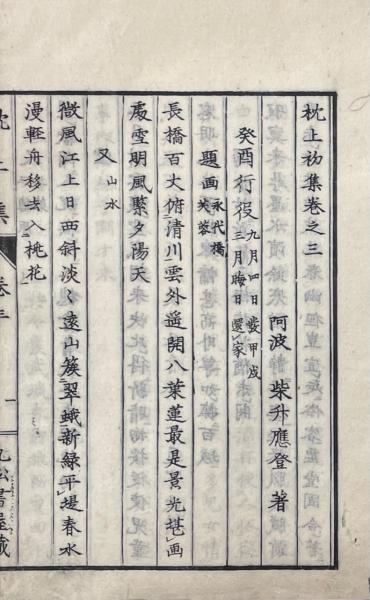 枕上初集卷之三
阿波 柴升應登 著
癸酉行役 九月四日發甲戌三月晦日還家
題画 永代橋芙蓉
長橋百丈俯清川雲外遥開八葉蓮最是景光堪画
處雪明風緊夕陽天
又 山水
微風江上日西斜淡〻遠山簇翠蛾新緑平堤春水
漫輕舟移去入桃花
枕上集 卷三 一 書屋藏